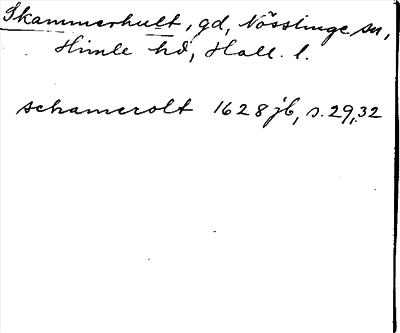 Skammerhult, gd, Nösslinge sn,
Himle hd, Hall. l.
schamerolt 1628 jb, s. 29, 32